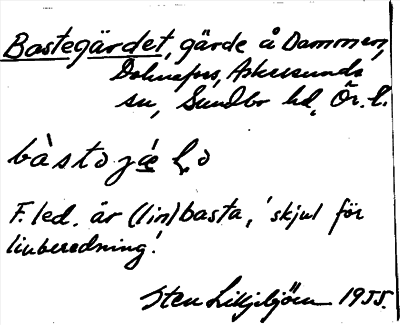 Bastegärdet, gärde å Dammen,
Dohnafors, Askersunds
sn, Sundbo hd, Ör. l.
bàstəjæ̀ḷə
F. led. är (lin)basta, 'skjul för
linberedning'.
Sten Liljebjörn 1955.